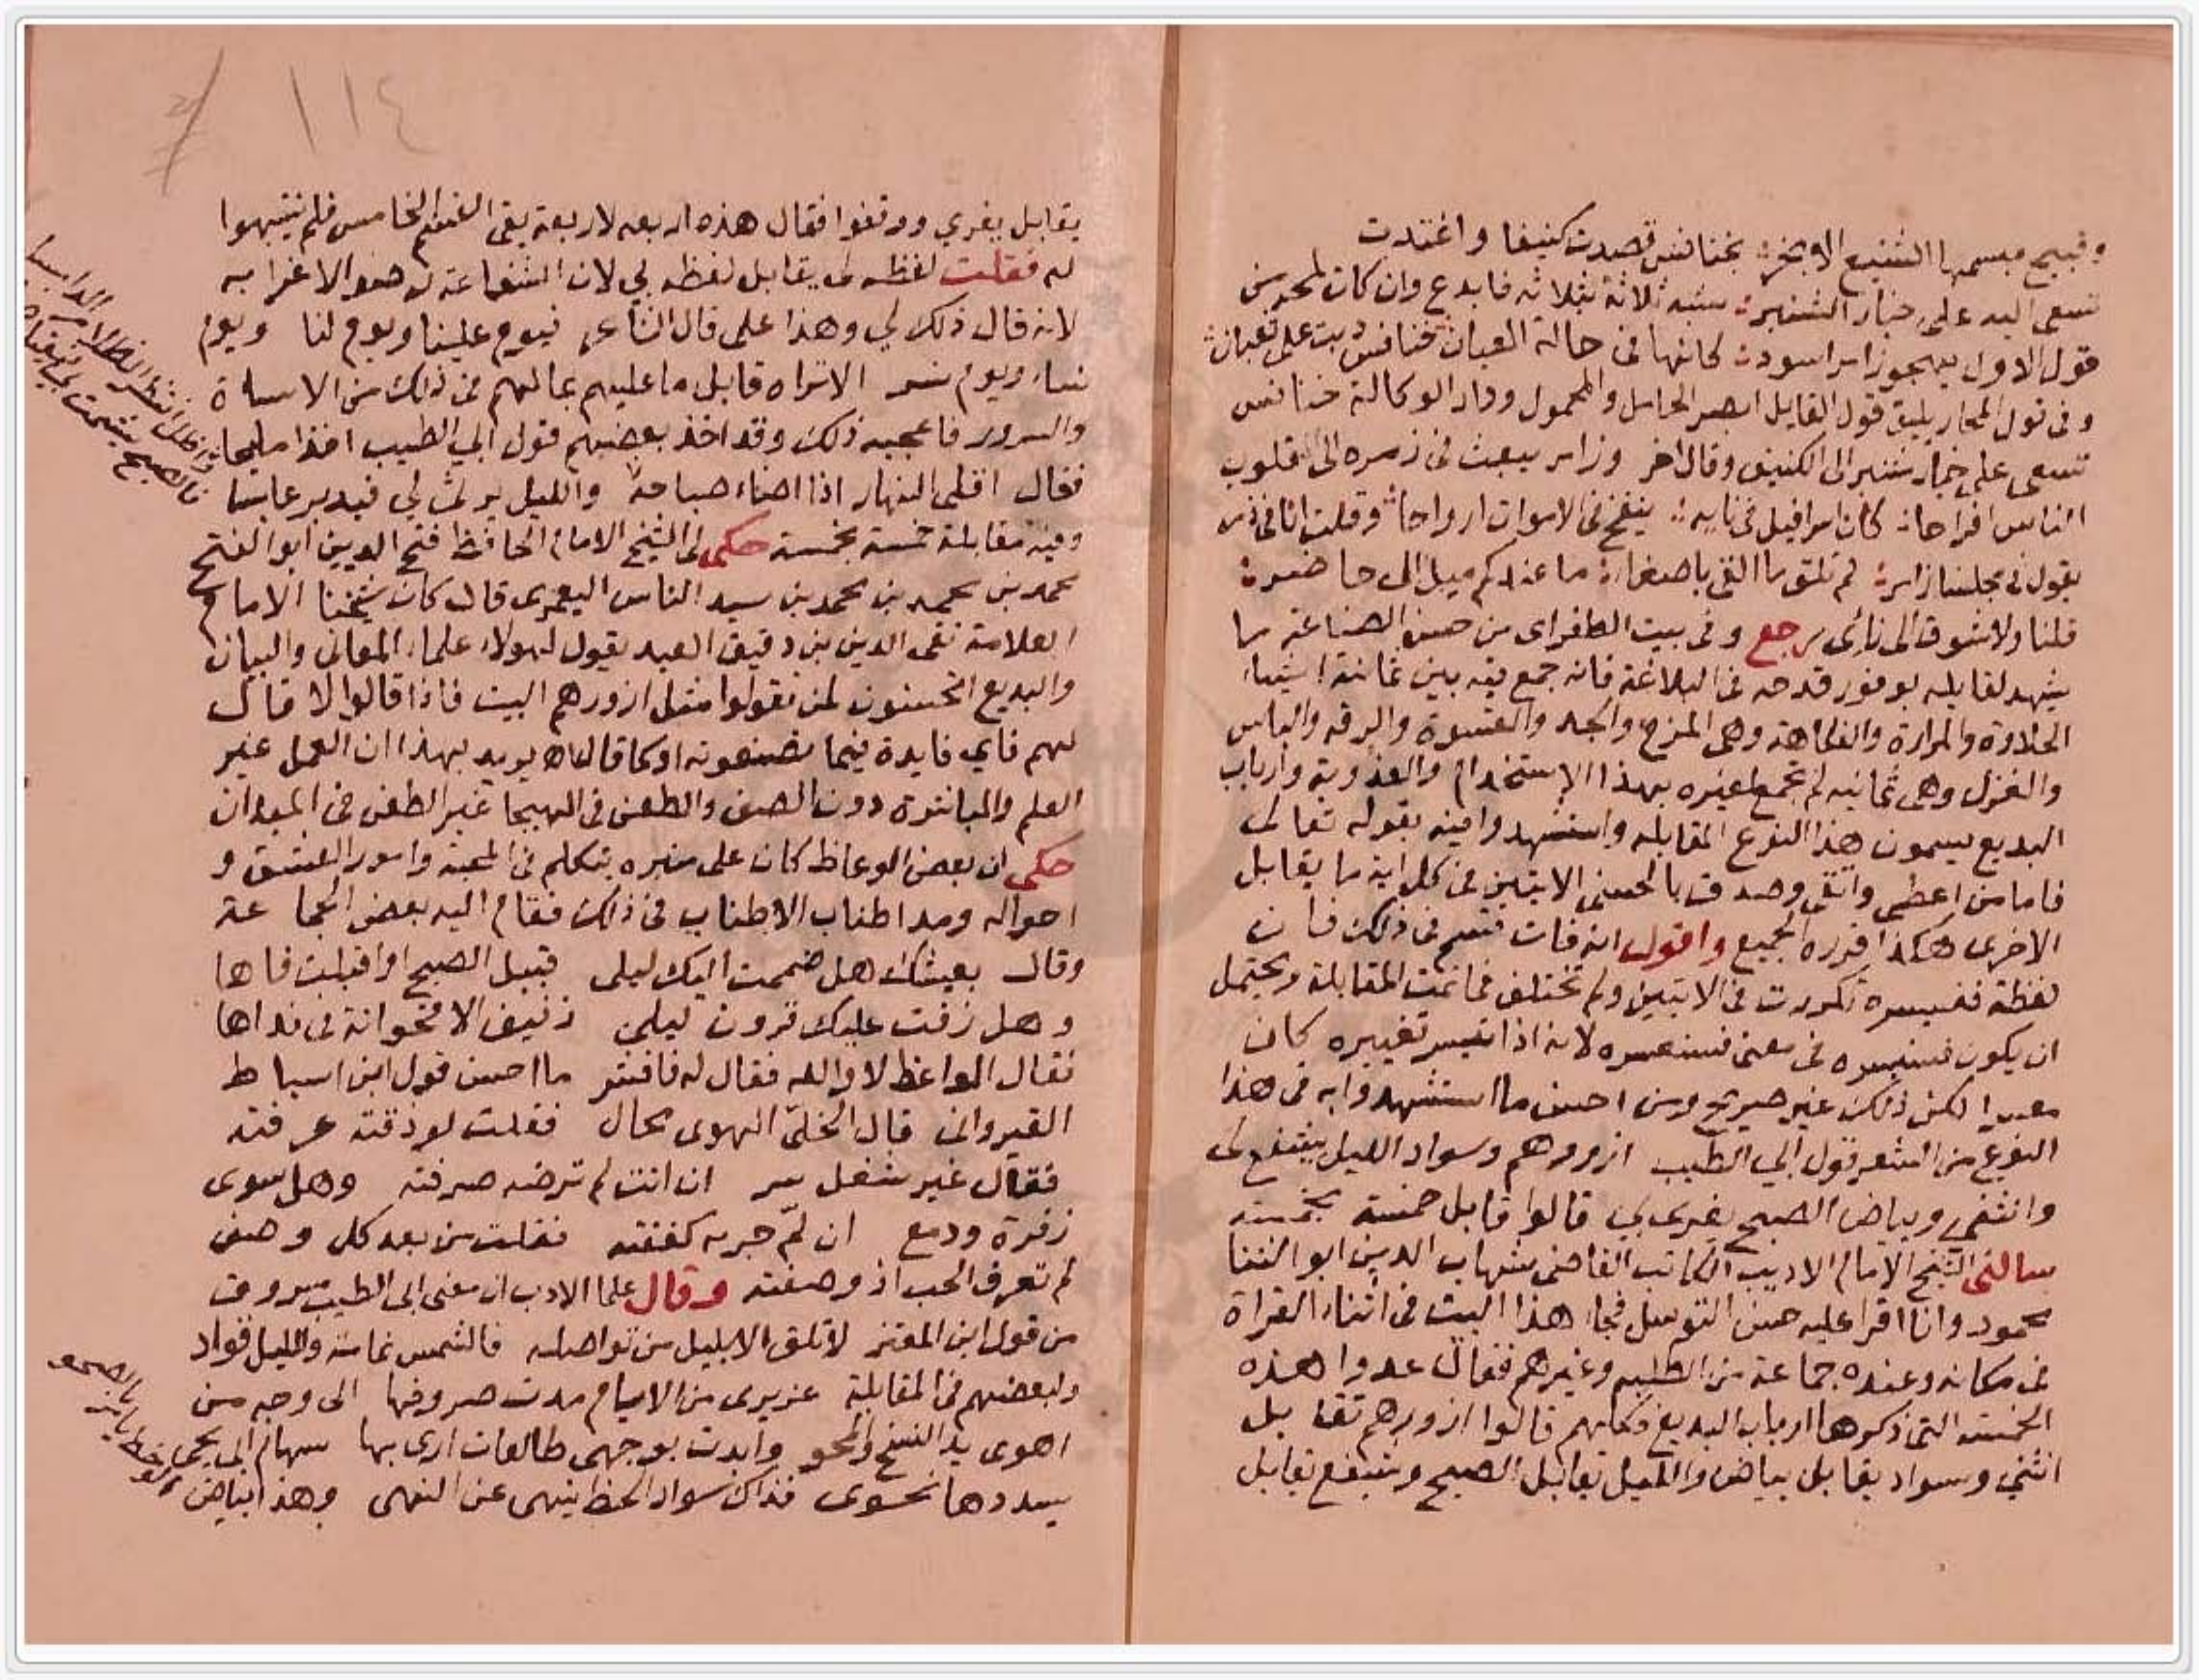 وقبيح مبسمها الشنيع الابخر بخنافس قصدت كنيفا واغتدت
تسعى اليه على خيار الشنبر شبه ثلاثة بثلاثة فابدع وان كان لمح من
قول الاول يهجو زامرا سودا كانها في حالة العيان خنافس دبت على ثعبان
وفي قول المحار يليق قول القايل ابصر الحامل والمحمول ودار الوكالة خنافس
تسعى على خيار شنبر الى الكنيف وقال اخر وزامر يبعث في زمره الى قلوب
الناس افراحا كان اسرافيل في نايه ينفخ في الاموات ارواحا وقلت انا في ذم
يقول في مجلسنا زامر لم تلق ما القى باصغار ما عندكم ميل الى حاضر
قلنا ولا شوق الى نائى رجع وفي بيت الطغراى من حسن الصناعة ما
يشهد لقايله بوفور قدحه في البلاغة فانه جمع فيه بين ثمانية اشياء
الحلاوة والمرارة والفكاهة وهى المزح والجد والقسوة والرقة والباس
والغزل وهى ثمانية لم تجمع لغيره بهذا الاستخدام والعذوبة وارباب
البديع يسمون هذا النوع المقابلة واستشهدوا فيه بقوله تعالى
فاما من اعطى واتقى وصدق بالحسنى الايتين في كل اية ما يقابل
الاخرى هكذا قرره الجميع واقول انه فات فتهم في ذلك فان
لفظة فسنيسره تكررت في الايتين ولم تختلف فما تمت المقابلة ويحتمل
ان يكون فسنيسره في معنى فسنعسره لانه اذا تيسر تغييره كان
معسرا لكن ذلك غير صريح ومن احسن ما استشهدوا به في هذا
النوع من الشعر قول ابي الطيب ازورهم وسواد الليل يشفع لى
وانثني وبياض الصبح يغرى بي قالوا قابل خمسة بخمسة
سالنى الشيخ الامام الاديب الكاتب القاضى شهاب الدين ابو الثنا
محمود وانا اقرا عليه حسن التوسل فجاء هذا البيت في اثناء القراة
في مكانه وعنده جماعة من الطلبة وغيرهم فقال عدوا هذه
الخمسة التى ذكرها ارباب البديع فكانهم قالوا ازورهم تقابل
انثني وسواد يقابل بياض والليل يقابل الصبح ويشفع يقابل
١١٤
يقابل يغري ووقفوا فقال هذه اربعه لاربعة بقى القسم الخامس فلم ينتبهوا
له فقلت لفظه لى يقابل لفظه بي لان الشفاعة له هو الاغرا به
لانه قال ذلك لي وهذا على قال الشاعر فيوم علينا ويوم لنا ويوم
نساء ويوم نسر الاتراه قابل ما عليهم بما لهم في ذلك من الاساة
والسرور فاعجبه ذلك وقد اخذ بعضهم قول ابي الطيب اخذا مليحا
فقال اقلى النهار اذا اضاء صباحه والليل يرثى لي فيدبر عابسا
وفيه مقابلة خمسة بخمسة حكى لى الشيخ الامام الحافظ فتح الدين ابو الفتح
محمد بن محمد بن محمد بن سيد الناس اليعمرى قال كان شيخنا الامام
العلامة تقى الدين بن دقيق العيد يقول لهولاء علماء المعانى والبيان
والبديع اتحسنون لمن تقولوا مثل ازورهم البيت فاذا قالوا لا قال
لهم فاي فايدة فيما تصنعونه او كما قال يريد بهذا ان العمل غير
العلم والمباشرة دون الصف والطعن في الهيجا غير الطعن في الميدان
حكى ان بعض الوعاظ كان على منبره يتكلم في المحبة وامور العشق و
احواله ومد اطناب الاطناب في ذلك فقام اليه بعض الجماعة
وقال بعيشك هل ضممت اليك ليلى قبيل الصبح او قبلت فاها
وهل رفت عليك قرون ليلى رفيف الاقحوانة في نداها
فقال الواعظ لا والله فقال له فافشر ما احسن قول ابن اسباط
القيروانى قال الخلىّ الهوى محال فقلت لو ذقته عرفته
فقال غير شغل سر ان انت لم ترضه صرفته وهل سوى
زفرة ودمع ان لم جريه كففته فقلت من بعد كل وصف
لم تعرف الحب اذ وصفته وقال علما الادب ان معنى ابى الطيب مسروق
من قول ابن المعتز لا تلق الا بليل من تواصله فالشمس نمامة والليل قواد
ولبعضهم في المقابلة عزيرى من الايام مدت صروفها الى وجه من
اهوى يد النسخ والمحو وابدت بوجهى طالعات ارى بها سهام ابى يحيى
يسددها نحوى فذاك سواد الحظ ينهى عن النهى وهذا بياض
واظل انتظر الظلام الدامسا
فالصبح يشمت بي
الوخط يامر
بالصحو